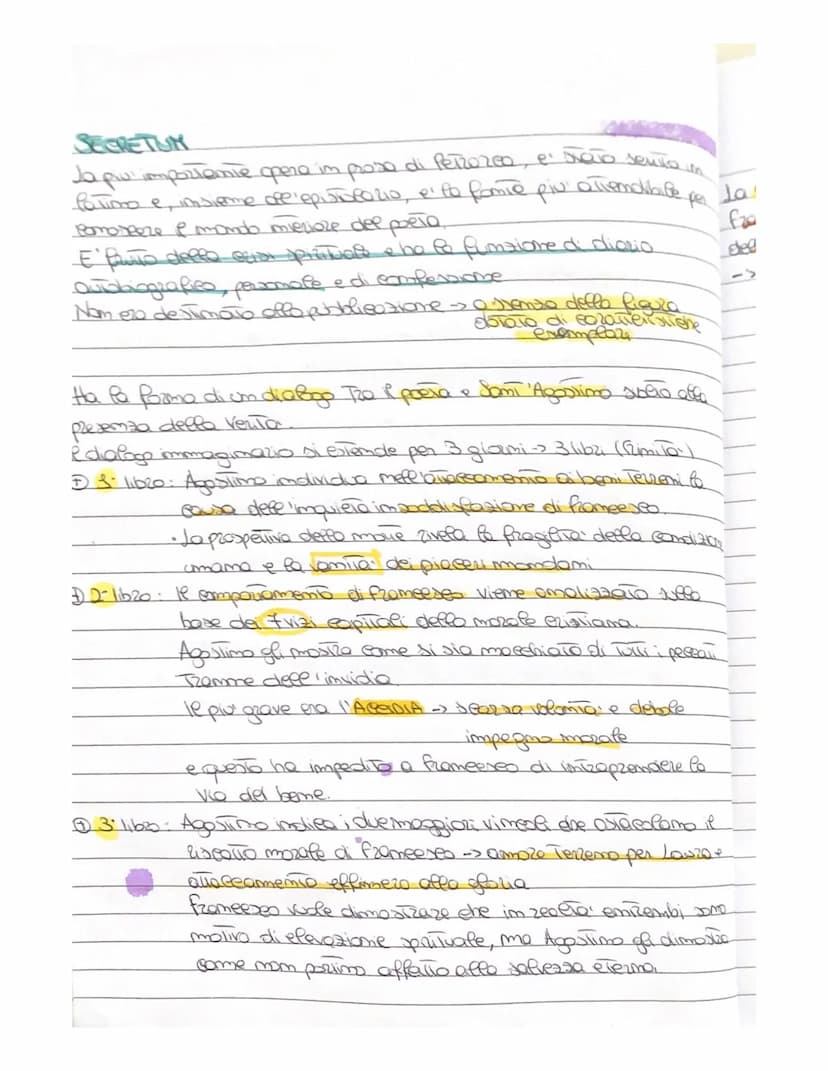 SECRETUM
La piu' importante opera in prosa di Petrarca, e' stato scritto in
latino e, insieme all'epistolario, e' la fonte piu' attendibile per
conoscere il mondo interiore del poeta.
E' frutto della crisi spirituale e ha la funzione di diario
autobiografico, personale e di confessione
Non era destinato alla pubblicazione -> assenza della figura
dotata di caratteristiche
esemplari
Ha la forma di un dialogo tra il poeta e Sant'Agostino sotto alla
presenza della Verita'.
Il dialogo immaginario si estende per 3 giorni -> 3 libri (Trinita')
libro: Agostino individua nell'attaccamento ai beni terreni la
causa dell'inquieta insoddisfazione di Francesco.
• La prospettiva della morte rivela la fragilita' della condizione
umana e la vanita' dei piaceri mondani
2° libro: Il comportamento di Francesco viene analizzato sulla
base dei 7 vizi capitali della morale cristiana.
Agostino gli mostra come si sia macchiato di tutti i peccati
tranne dell'invidia
Il piu' grave era l'ACCIDIA -> scarsa volonta' e debole
impegno morale
e questo ha impedito a Francesco di intraprendere la
via del bene.
3° libro: Agostino indica i due maggiori vincoli che ostacolano il
riscatto morale di Francesco -> amore terreno per Laura e
attaccamento effimero alla gloria
Francesco vuole dimostrare che in realta' entrambi sono
motivo di elevazione spirituale, ma Agostino gli dimostra
come non portino affatto alla salvezza eterna.
La